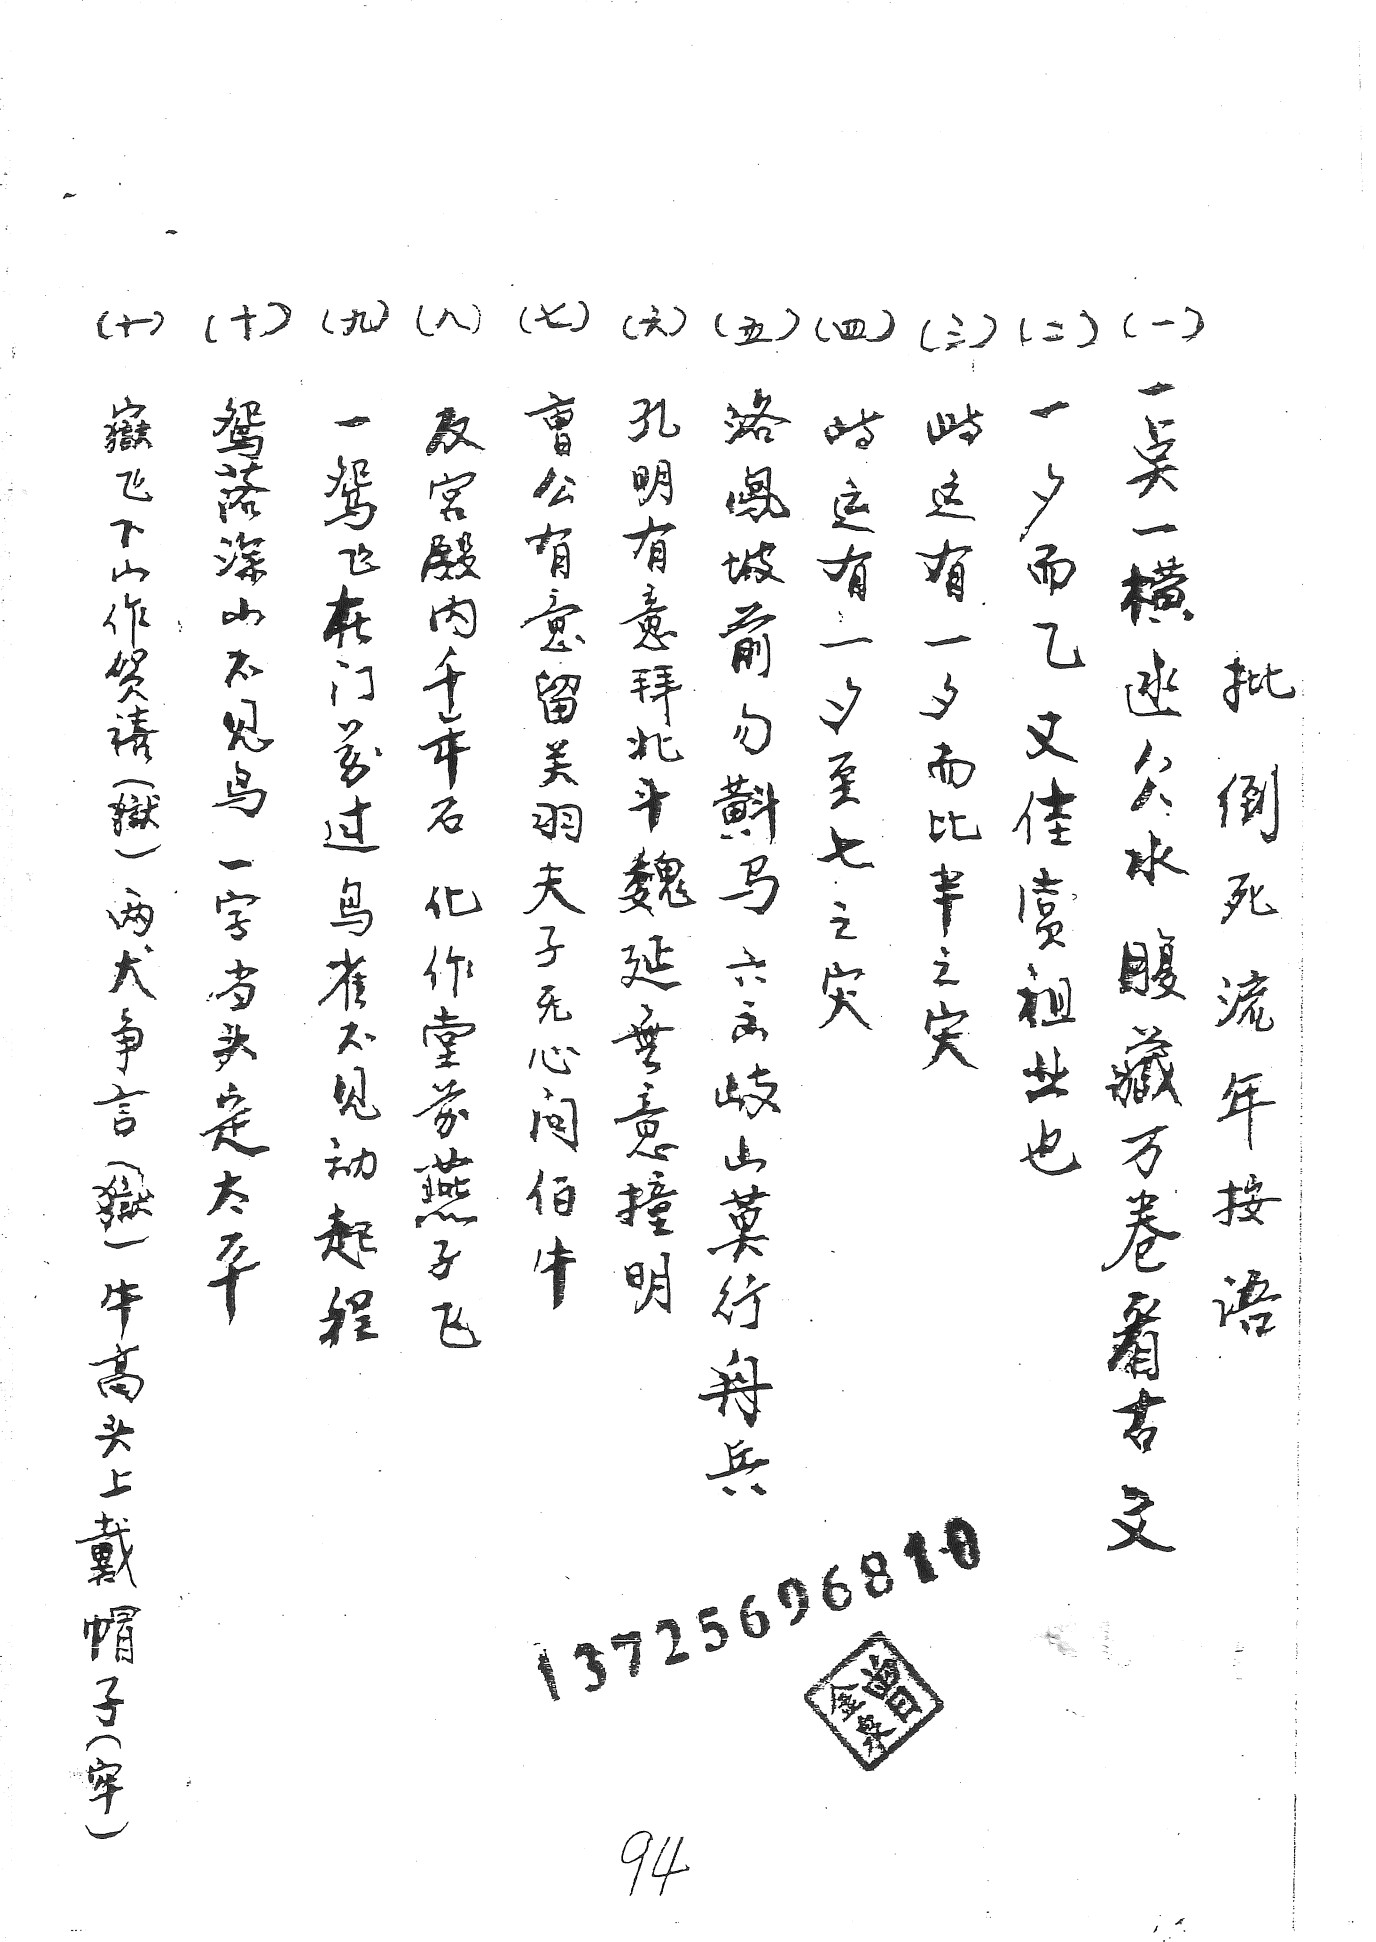 批倒死流年按语
(一) 一吴一横逖欠水腹藏万卷看书文
(二) 一夕而乙又佳賣祖业也
(三) 時运有一夕而比半之灾
(四) 時运有一夕至七之灾
(五) 洛鳳坡前勿斢马六出岐山莫行舟兵
(六) 孔明有意拜北斗魏延無意撞明
(七) 曹公有意留关羽夫子无心问伯牛
(八) 宮殿内千年石化作堂前燕子飞
(九) 一鴛飞在门前过鳥雀不见动起程
(十) 鴛落深山不见鸟一字当头定太平
(十) 嶽飞下山作贺禧(獄)两犬争言(獄)牛高头上戴帽子(牢)
13725696810
曾金
94